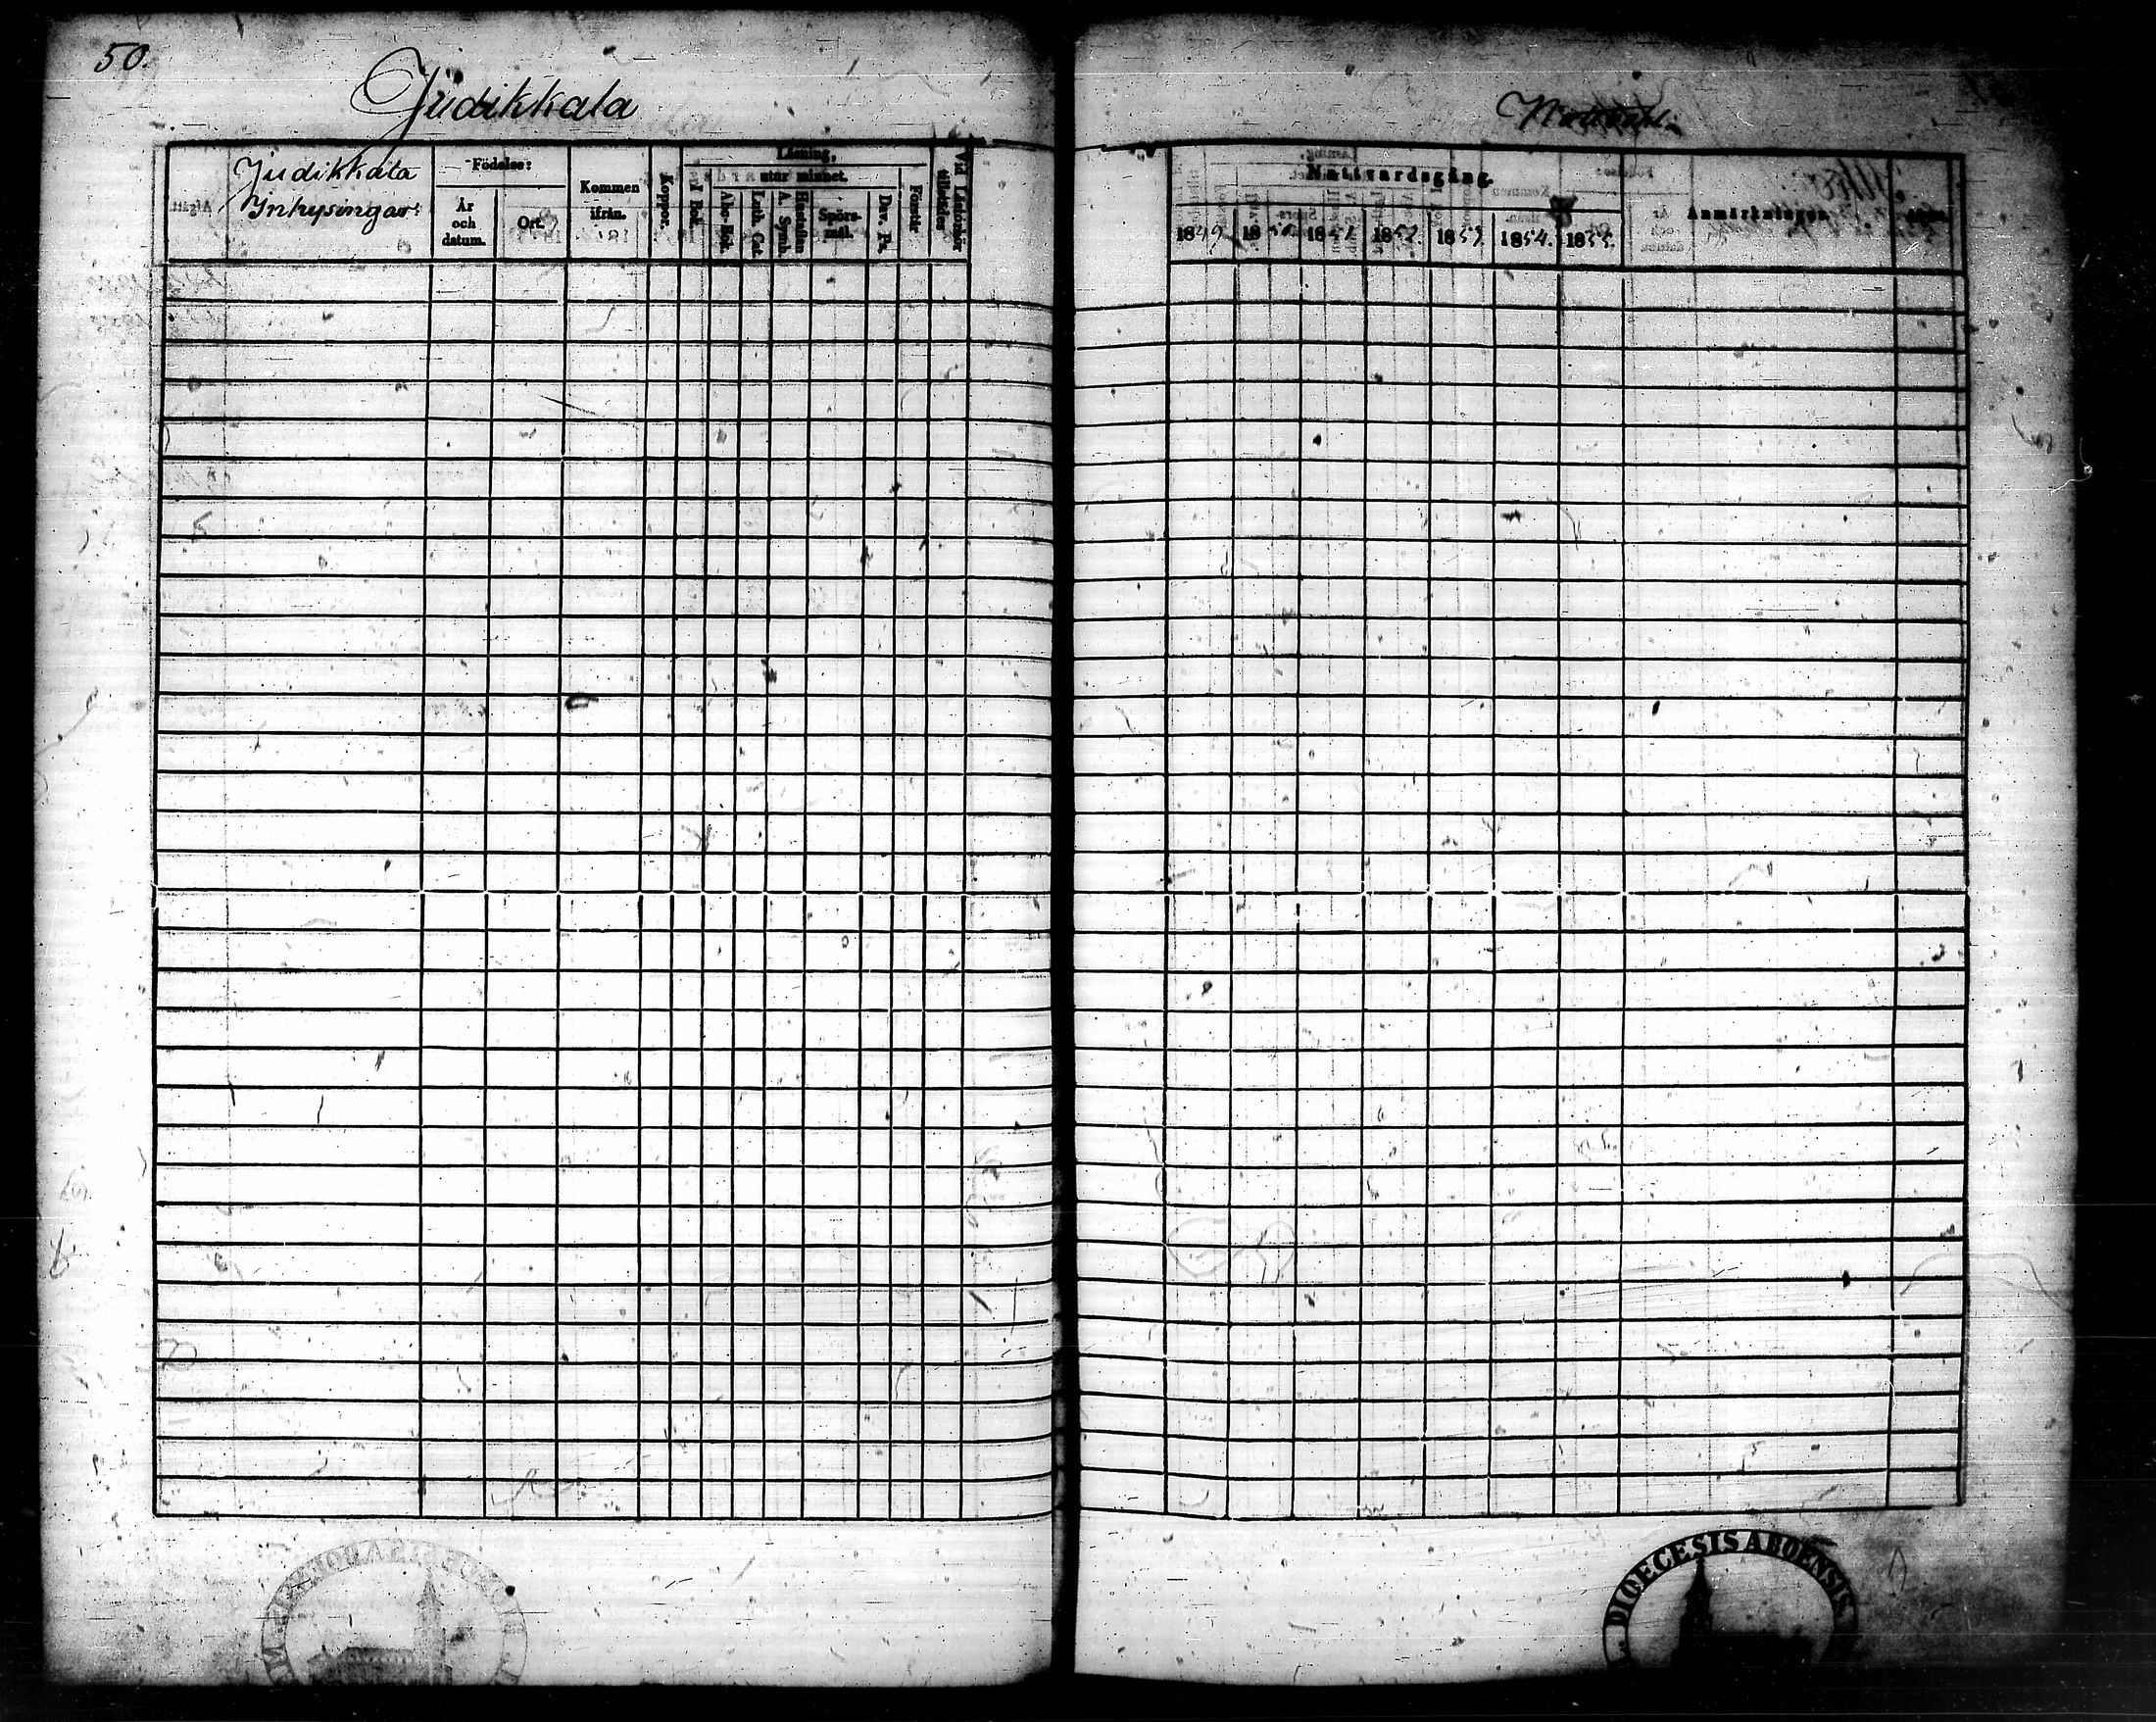 50.
Judikkala
Judikkala
Inhysingar:
Afgått.
Födelse:
År och datum.
Ort.
Kommen ifrån.
Koppor.
Läsning,
I Bok.
utur minnet.
Abc-Bok.
Luth. Cat.
A. Symb.
Hustaflan
Spörs-mål.
Dav. Ps.
Förstår
Vid Läsförhör tillstädes
Nattvardsgång.
1849.
1850.
1851.
1852.
1853.
1854.
1855.
Anmärkningar.
DIOECESIS ABOENSIS